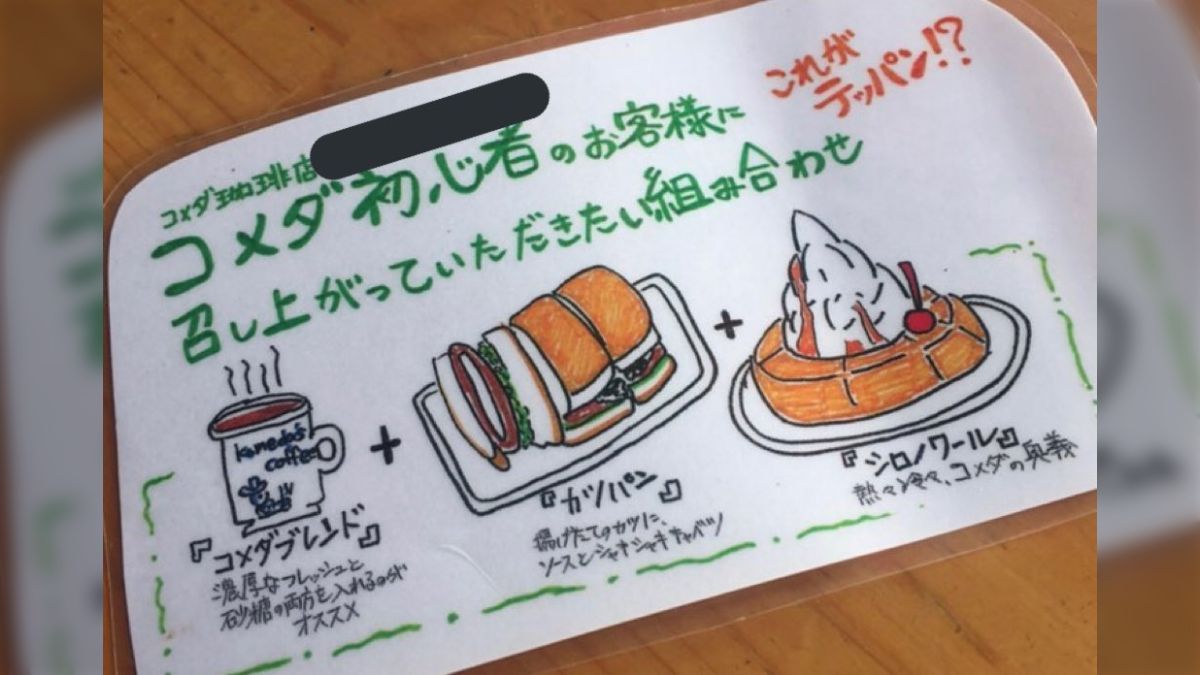 これが
テッパン!?
コメダ珈琲店
コメダ初心者のお客様に
召し上がっていただきたい組み合わせ
Komeda's
coffee
+
+
『コメダブレンド』
濃厚なフレッシュと
砂糖の両方を入れるのが
オススメ
『カツパン』
揚げたてのカツに、
ソースとシャキシャキキャベツ
『シロノワール』
熱々冷々、コメダの奥義